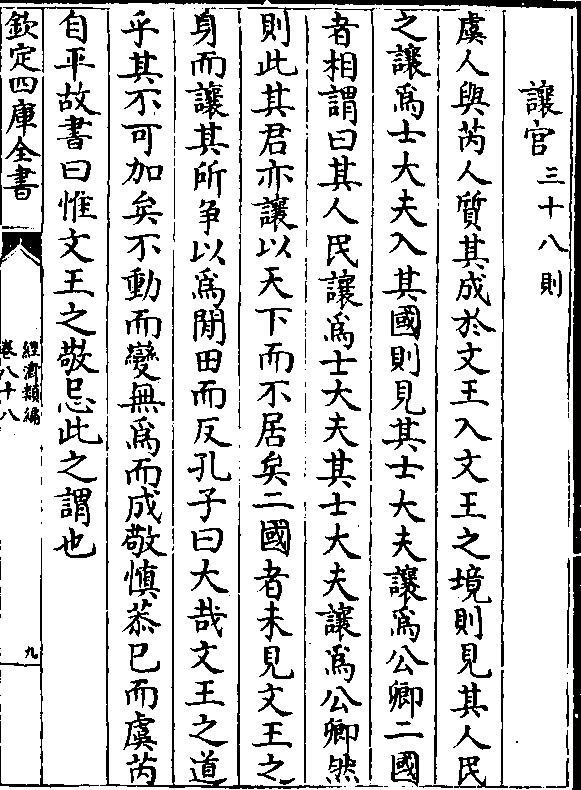 讓官三十八則
虞人與芮人質其成於文王入文王之境則見其人民
之讓為士大夫入其國則見其士大夫讓為公卿二國
者相謂曰其人民讓為士大夫其士大夫讓為公卿然
則此其君亦讓以天下而不居矣二國者未見文王之
身而讓其所爭以為閒田而反孔子曰大哉文王之道
乎其不可加矣不動而變無為而成敬慎恭已而虞芮
自平故書曰惟文王之敬忌此之謂也
欽定四庫全書
經濟類編
卷八十八
九